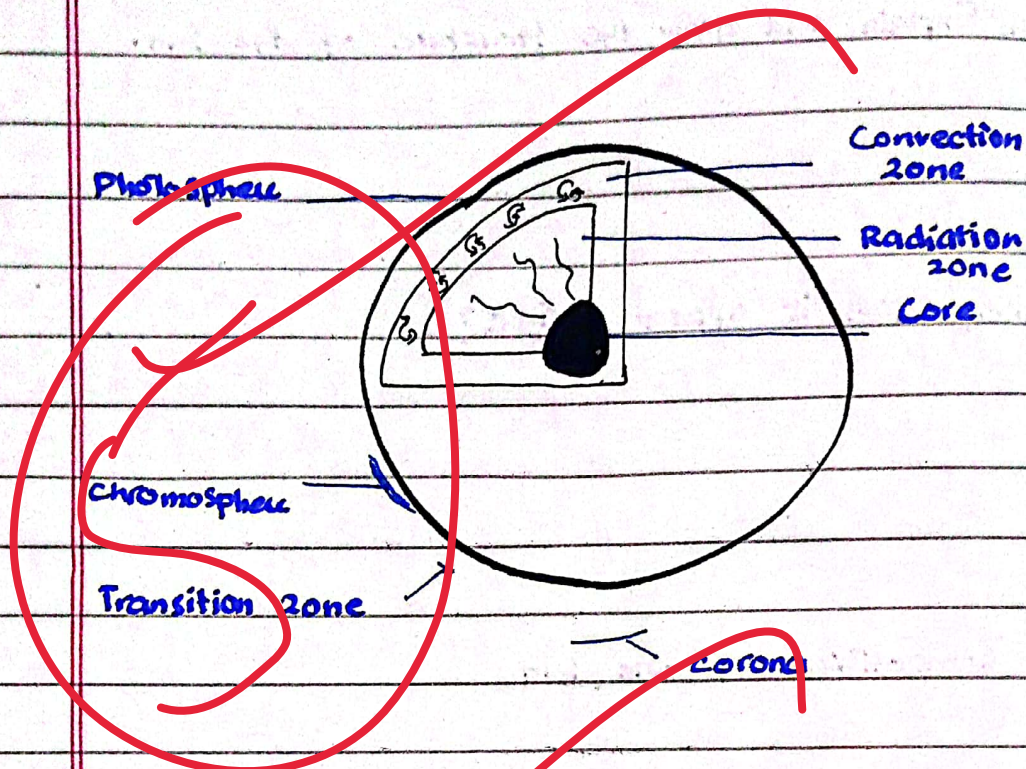 Photospheru
Convection
zone
Radiation
zone
Core
Chromospheru
Transition zone
Corona